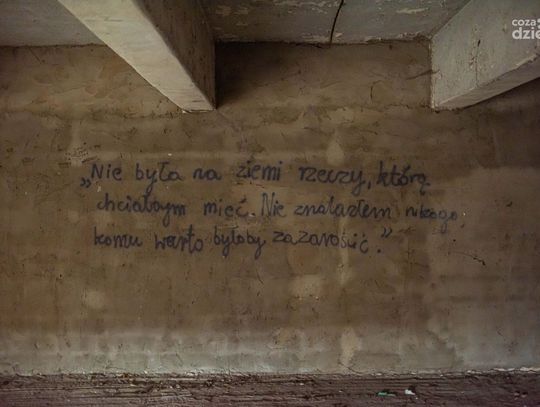 coza
dzień
„Nie była na ziemi rzeczy, którą
chciałbym mieć. Nie znalazłem nikogo,
komu warto byłoby zazdrościć.”